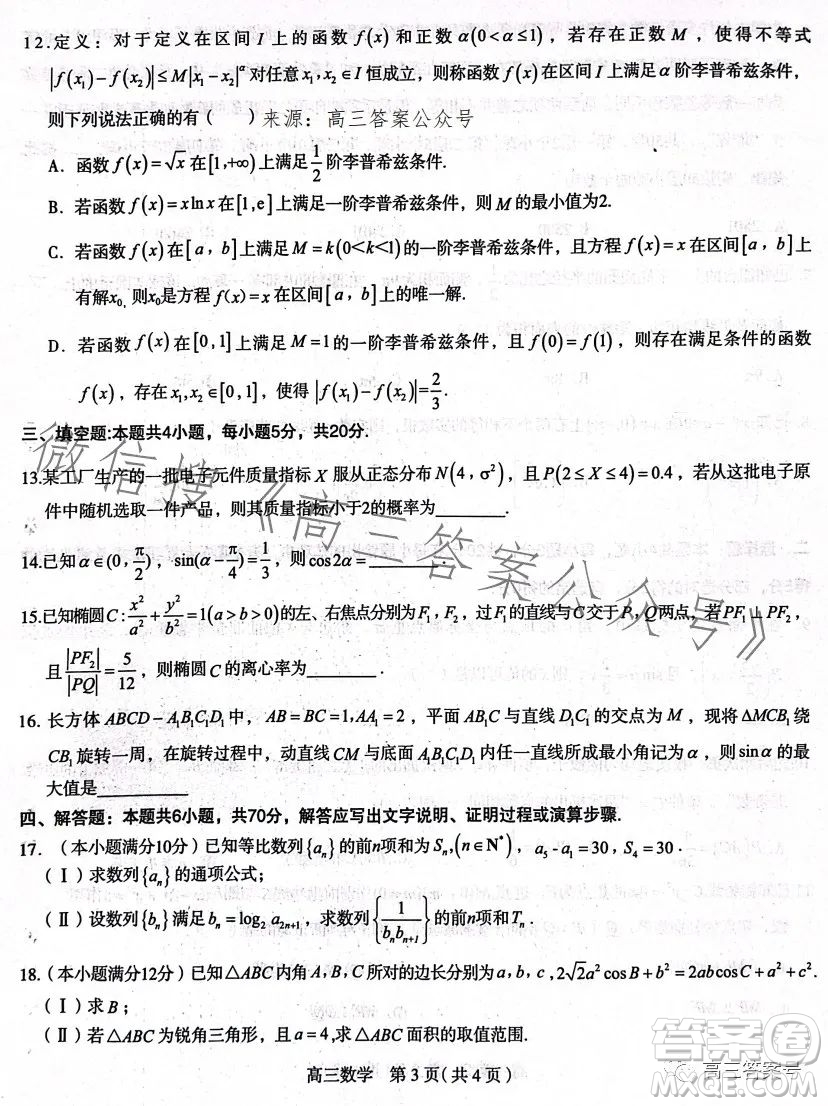 12.定义：对于定义在区间 I 上的函数 f(x) 和正数 α(0<α≤1)，若存在正数 M，使得不等式
|f(x₁)-f(x₂)|≤M|x₁-x₂|^α 对任意 x₁,x₂∈I 恒成立，则称函数 f(x) 在区间 I 上满足 α 阶李普希兹条件，
则下列说法正确的有（ ） 来源：高三答案公众号
A．函数 f(x)=√x 在[1,+∞) 上满足 1/2 阶李普希兹条件.
B．若函数 f(x)=xlnx 在[1,e] 上满足一阶李普希兹条件，则 M 的最小值为2.
C．若函数 f(x) 在[a,b] 上满足 M=k(0<k<1) 的一阶李普希兹条件，且方程 f(x)=x 在区间[a,b] 上
有解x₀，则x₀是方程 f(x)=x 在区间[a,b] 上的唯一解.
D．若函数 f(x) 在[0,1] 上满足 M=1 的一阶李普希兹条件，且 f(0)=f(1)，则存在满足条件的函数
f(x)，存在 x₁,x₂∈[0,1]，使得 |f(x₁)-f(x₂)|=2/3.
三、填空题:本题共4小题，每小题5分，共20分.
13.某工厂生产的一批电子元件质量指标 X 服从正态分布 N(4,σ²)，且 P(2≤X≤4)=0.4，若从这批电子原
件中随机选取一件产品，则其质量指标小于2的概率为________.
14.已知 α∈(0,π/2)，sin(α-π/4)=1/3，则 cos2α=________.
15.已知椭圆 C:x²/a²+y²/b²=1(a>b>0) 的左、右焦点分别为 F₁，F₂，过 F₁的直线与C交于 P，Q两点，若 PF₁⊥PF₂，
且 |PF₂|/|PQ|=5/12，则椭圆 C 的离心率为________.
16. 长方体 ABCD-A₁B₁C₁D₁ 中，AB=BC=1,AA₁=2，平面 AB₁C 与直线 D₁C₁ 的交点为 M，现将 ΔMCB₁ 绕
CB₁ 旋转一周，在旋转过程中，动直线 CM 与底面 A₁B₁C₁D₁ 内任一直线所成最小角记为 α，则 sinα 的最
大值是________.
四、解答题：本题共6小题，共70分，解答应写出文字说明、证明过程或演算步骤.
17.（本小题满分10分）已知等比数列{aₙ} 的前n项和为 Sₙ,(n∈N*)，a₅-a₁=30，S₄=30．
（Ⅰ）求数列{aₙ} 的通项公式；
（Ⅱ）设数列{bₙ} 满足 bₙ=log₂ a₂ₙ₊₁，求数列 {1/(bₙbₙ₊₁)} 的前n项和 Tₙ．
18.（本小题满分12分）已知△ABC 内角 A,B,C 所对的边长分别为 a,b,c,2√2a²cosB+b²=2abcosC+a²+c².
（Ⅰ）求 B；
（Ⅱ）若 △ABC 为锐角三角形，且 a=4,求 △ABC 面积的取值范围.
高三数学 第 3 页（共 4 页）
微信搜《高三答案公众号》
答案圈
MXQE.COM
高三答案号